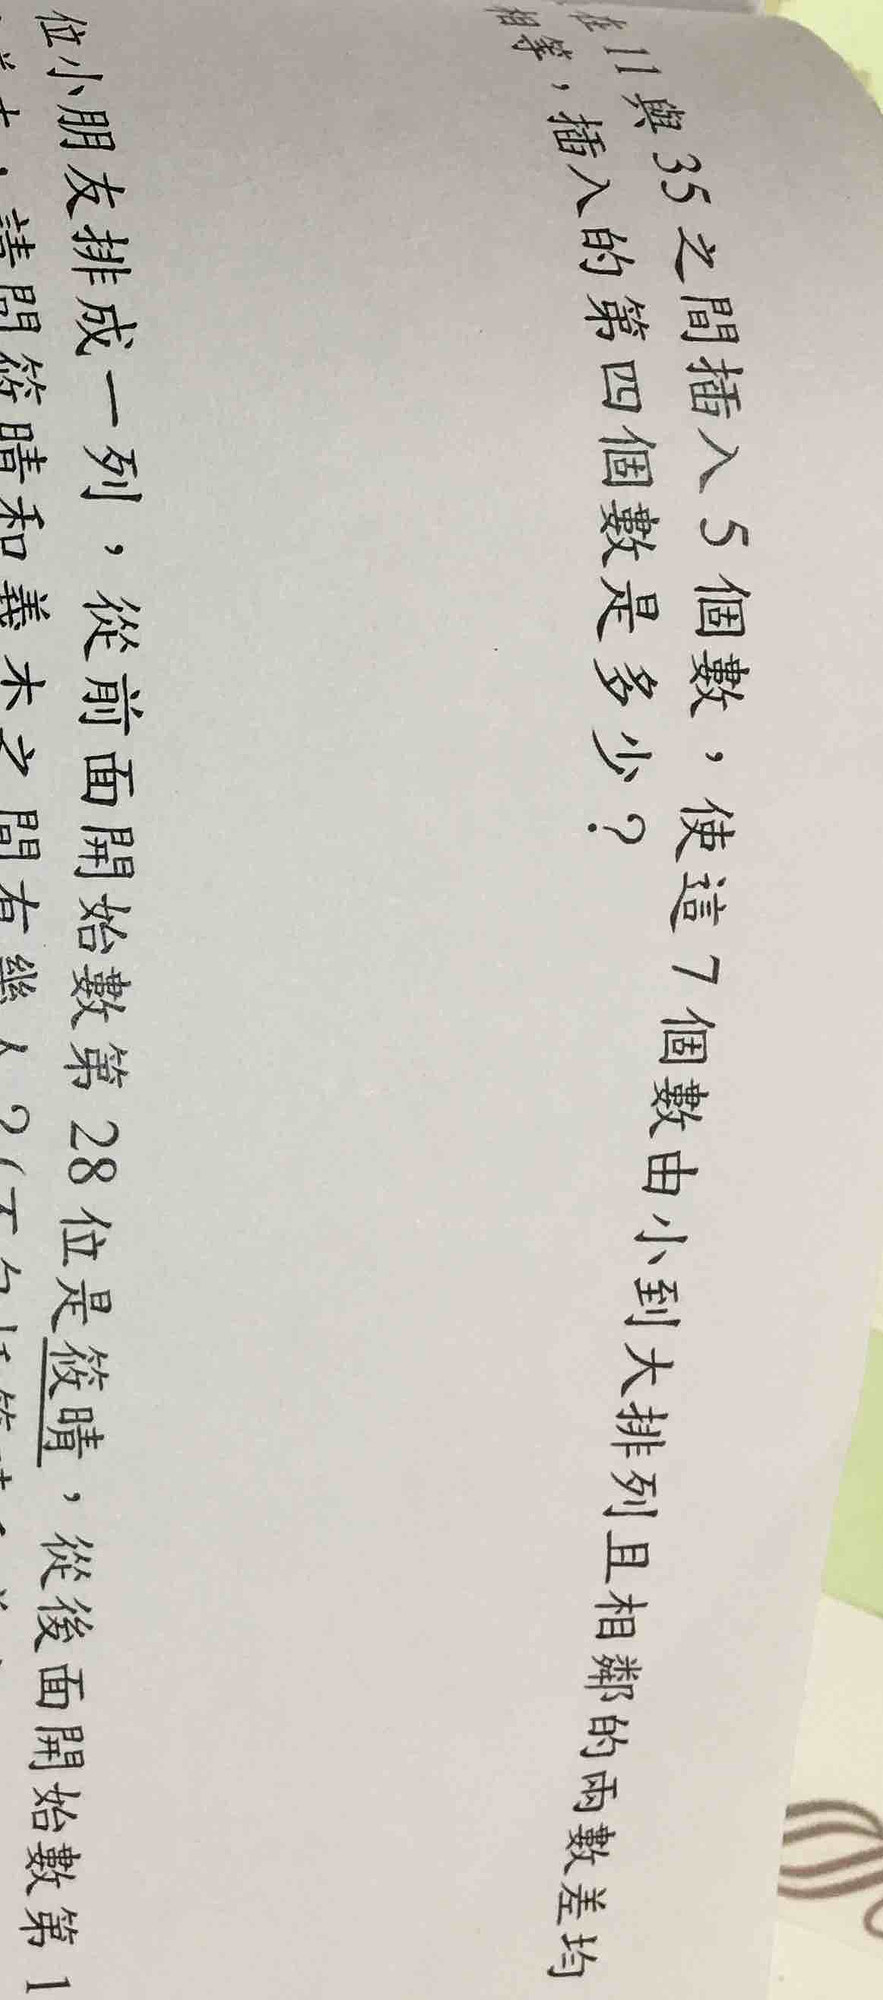 在11與35之間插入5個數，使這7個數由小到大排列且相鄰的兩數差均
相等，插入的第四個數是多少？
位小朋友排成一列，從前面開始數第28位是筱晴，從後面開始數第1
請問筱晴和義木之間有幾人？(不包括筱晴